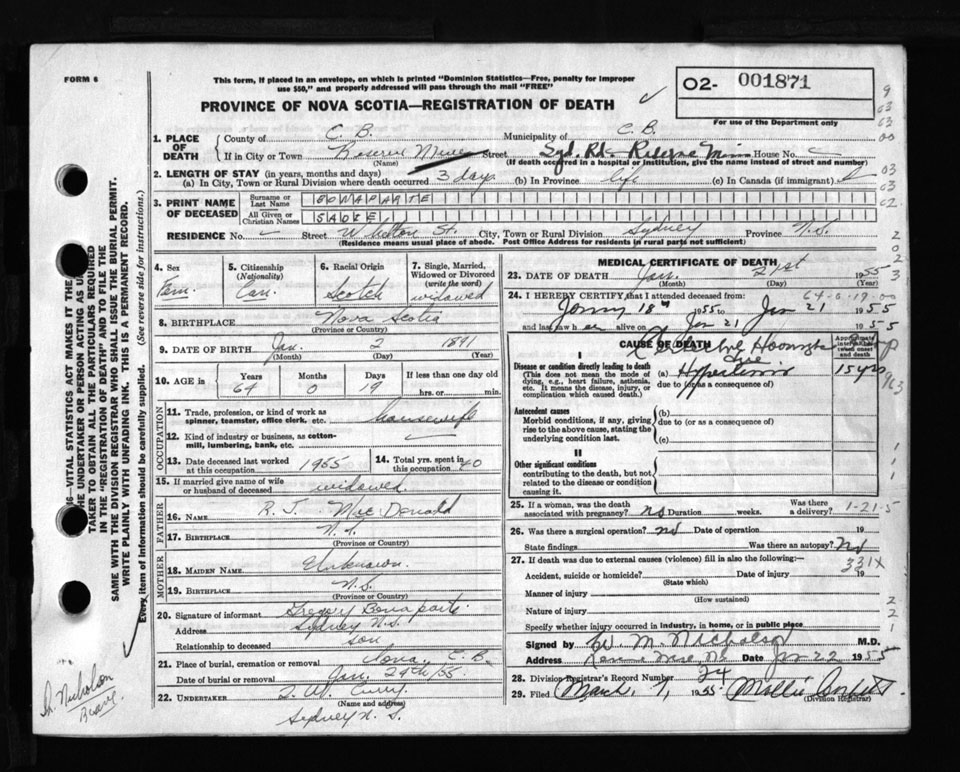 FORM 6
This form, if placed in an envelope, on which is printed "Dominion Statistics—Free, penalty for improper
use $50," and properly addressed will pass through the mail "FREE"
PROVINCE OF NOVA SCOTIA—REGISTRATION OF DEATH
02- 001871
For use of the Department only
1. PLACE OF DEATH
County of C. B. Municipality of C. B.
If in City or Town Reserve Mines Street Syd. Rd. Reserve Mines House No.
(Name) (If death occurred in a hospital or institution, give the name instead of street and number)
2. LENGTH OF STAY (in years, months and days)
(a) In City, Town or Rural Division where death occurred 3 days (b) In Province life (c) In Canada (if immigrant)
3. PRINT NAME OF DECEASED
Surname or Last Name BONAPARTE
All Given or Christian Names SADIE
RESIDENCE No. Street St. City, Town or Rural Division Sydney Province N.S.
(Residence means usual place of abode. Post Office Address for residents in rural parts not sufficient)
4. Sex Fem.
5. Citizenship (Nationality) Can.
6. Racial Origin Scotch
7. Single, Married, Widowed or Divorced (write the word) widowed
8. BIRTHPLACE Nova Scotia
(Province or Country)
9. DATE OF BIRTH Jan. 2 1891
(Month) (Day) (Year)
10. AGE in Years Months Days If less than one day old
64 0 19 hrs. or min.
OCCUPATION
11. Trade, profession, or kind of work as spinner, teamster, office clerk, etc. housewife
12. Kind of industry or business, as cotton-mill, lumbering, bank, etc.
13. Date deceased last worked at this occupation 1955
14. Total yrs. spent in this occupation 40
15. If married give name of wife or husband of deceased widowed
FATHER
16. NAME R. J. MacDonald
17. BIRTHPLACE N.S.
(Province or Country)
MOTHER
18. MAIDEN NAME Unknown
19. BIRTHPLACE N.S.
(Province or Country)
20. Signature of informant Gregory Bonaparte
Address Sydney N.S.
Relationship to deceased son
21. Place of burial, cremation or removal Iona, C.B.
Date of burial or removal Jan. 24th/55
22. UNDERTAKER Curry
(Name and address)
Sydney N.S.
MEDICAL CERTIFICATE OF DEATH
23. DATE OF DEATH Jan. 21st 1955
(Month) (Day)
64-0-19-00
24. I HEREBY CERTIFY that I attended deceased from:
18th 1955 to Jan 21 1955
and last saw her alive on Jan 21 1955
CAUSE OF DEATH
Approximate interval between onset and death
I
Disease or condition directly leading to death
(This does not mean the mode of dying, e.g., heart failure, asthenia, etc. It means the disease, injury, or complication which caused death.)
(a) Cerebral due Hypertension 15 yrs
due to (or as a consequence of)
Antecedent causes
Morbid conditions, if any, giving rise to the above cause, stating the underlying condition last.
(b)
due to (or as a consequence of)
(c)
II
Other significant conditions
contributing to the death, but not related to the disease or condition causing it.
25. If a woman, was the death associated with pregnancy? no Duration weeks. Was there a delivery? 1-21-5
26. Was there a surgical operation? no Date of operation 19
State findings Was there an autopsy? No
27. If death was due to external causes (violence) fill in also the following:
331X
Accident, suicide or homicide? Date of injury 19
(State which)
Manner of injury
(How sustained)
Nature of injury
Specify whether injury occurred in industry, in home, or in public place
Signed by W. M. Nicholson M.D.
Address Date Jan 22 1955
28. Division Registrar's Record Number 24
29. Filed March 7, 1955 Mollie
(Division Registrar)
SAME WITH THE DIVISION REGISTRAR WHO SHALL ISSUE THE BURIAL PERMIT.
WRITE PLAINLY WITH UNFADING INK. THIS IS A PERMANENT RECORD.
Every item of information should be carefully supplied. (See reverse side for instructions.)
Nicholson